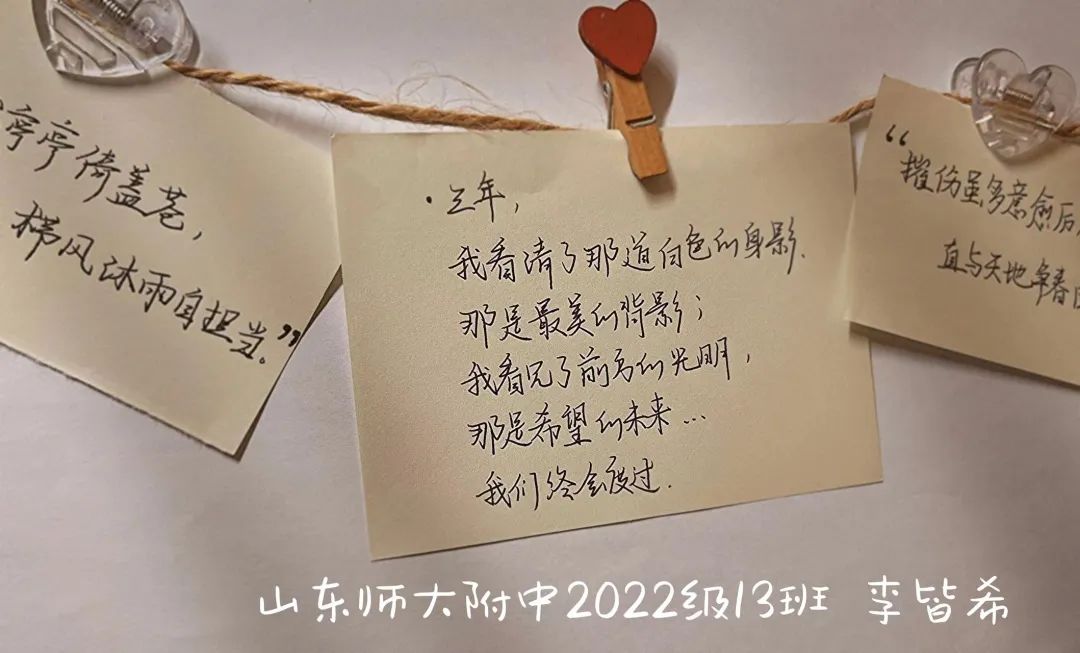 亭亭倚盖苍，
栉风沐雨自担当。”
·三年，
我看清了那道白色的身影.
那是最美的背影；
我看见了前方的光明，
那是希望的未来…
我们终会度过.
“摧伤虽多意愈厉，
直与天地争春回
山东师大附中2022级13班 李皆希